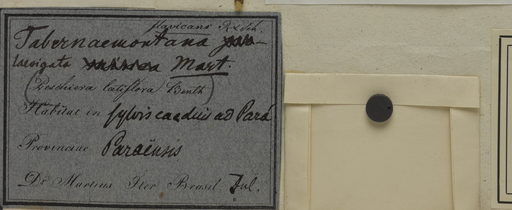 flavicans R&Sch.
Tabernaemontana
laevigata Mart.
(Peschiera latiflora Benth)
Habitat in sylvis caeduis ad Pará
Provinciae Paraënsis
Dr. Martius Iter Brasil. Jul.